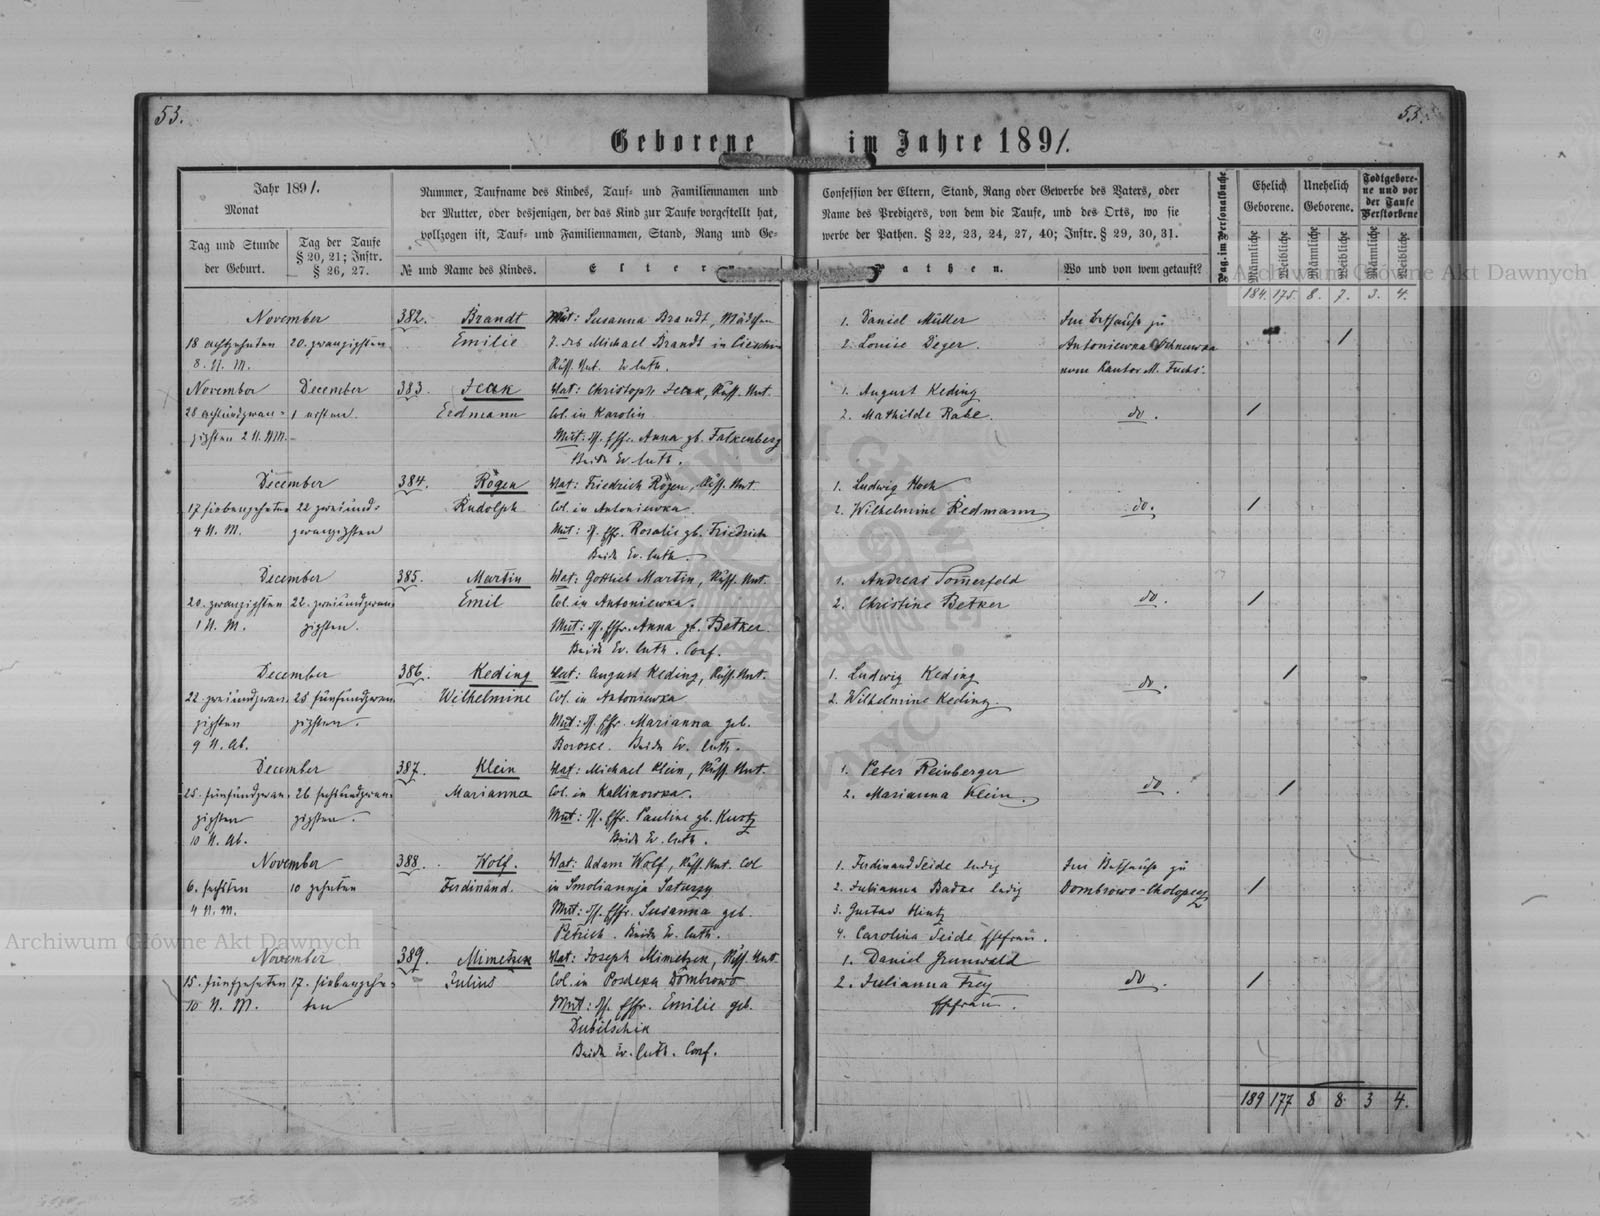 53.
53.
Geborene im Jahre 1891.
Jahr 1891.
Monat
Tag und Stunde
der Geburt.
Tag der Taufe
§ 20, 21; Instr.
§ 26, 27.
Nummer, Taufname des Kindes, Tauf- und Familiennamen und
der Mutter, oder desjenigen, der das Kind zur Taufe vorgestellt hat,
vollzogen ist, Tauf- und Familiennamen, Stand, Rang und Ge-
№ und Name des Kindes.
Eltern
Confession der Eltern, Stand, Rang oder Gewerbe des Vaters, oder
Name des Predigers, von dem die Taufe, und des Orts, wo sie
werbe der Pathen. § 22, 23, 24, 27, 40; Instr. § 29, 30, 31.
Pathen.
Wo und von wem getauft?
Pag. im Personalbuche.
Ehelich
Geborene.
Unehelich
Geborene.
Todtgebore-
ne und vor
der Taufe
Verstorbene
Männliche
Weibliche
Männliche
Weibliche
Männliche
Weibliche
184. 175. 8. 7. 3. 4.
November
18 achtzehnten
8. U. M.
20. zwanzigsten
382. Brandt
Emilie
Mut: Susanna Brandt, Mädchen
T. des Michael Brandt in
Russ. Unt. Ev. luth.
1. Daniel Müller
2. Louise Döger.
Im Bethause zu
Antoniewka
vom Kantor M. Fuchs.
November
28 achtundzwan-
zigsten 2 U. NM.
December
1 ersten.
383. Jeak
Erdmann
Vat: Christoph Jeak, Russ. Unt.
Col. in Karolin
Mut: d. Ehfr. Anna gb. Falkenberg
Beide Ev. luth.
1. August Keding
2. Mathilde Rabe.
do.
December
17 siebenzehnten
4 U. M.
22 zweiund-
zwanzigsten
384. Rögen
Rudolph
Vat: Friedrich Rögen, Russ. Unt.
Col. in Antoniewka.
Mut: d. Ehfr. Rosalie gb. Friedrich
Beide Ev. luth.
1. Ludwig Koch
2. Wilhelmine Redmann
do.
December
20. zwanzigsten
1 U. M.
22. zweiundzwan-
zigsten.
385. Martin
Emil
Vat: Gottlieb Martin, Russ. Unt.
Col. in Antoniewka.
Mut: d. Ehfr. Anna gb. Betker.
Beide Ev. luth. Conf.
1. Andreas Somerfeld
2. Christine Betker
do.
December
22. zweiundzwan-
zigsten
9 U. Ab.
25 fünfundzwan-
zigsten.
386. Keding
Wilhelmine
Vat: August Keding, Russ. Unt.
Col. in Antoniewka
Mut: d. Ehfr. Marianna geb.
Boroske. Beide Ev. luth.
1. Ludwig Keding
2. Wilhelmine Keding.
do.
December
25. fünfundzwan-
zigsten
10 U. Ab.
26 sechsundzwan-
zigsten.
387. Klein
Marianna
Vat: Michael Klein, Russ. Unt.
Col. in Kallinowka.
Mut: d. Ehfr. Pauline gb. Kurtz
Beide Ev. luth.
1. Peter Reinberger
2. Marianna Klein.
do.
November
6. sechsten
4 U. M.
10 zehnten
388. Wolf.
Ferdinand.
Vat: Adam Wolf, Russ. Unt. Col
in Smoliannja
Mut: d. Ehfr. Susanna geb.
Petrich. Beide Ev. luth.
1. Ferdinand Seide ledig
2. Julianna Badke ledig
3. Gustav Hintz
4. Carolina Seide Ehefrau.
Im Bethause zu
November
15. fünfzehnten
10 U. M.
17. siebenzehn-
ten
389. Mimetzek
Julius
Vat: Joseph Mimetzek, Russ. Unt
Col. in Poscheka Dombrowo
Mut: d. Ehfr. Emilie geb.
Dubilschik
Beide Ev. luth. Conf.
1. Daniel Grunwald
2. Julianna Frey
Ehefrau.
do.
189 177 8 8 3 4.
Archiwum Główne Akt Dawnych
Archiwum Główne Akt Dawnych